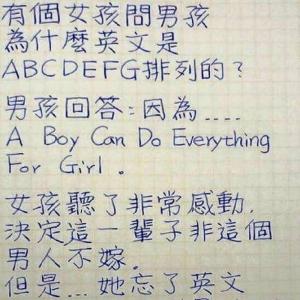 有個女孩問男孩
為什麼英文是
ABCDEFG排列的?
男孩回答:因為....
A Boy Can Do Everything
For Girl.
女孩聽了非常感動,
決定這一輩子非這個
男人不嫁。
但是...她忘了英文